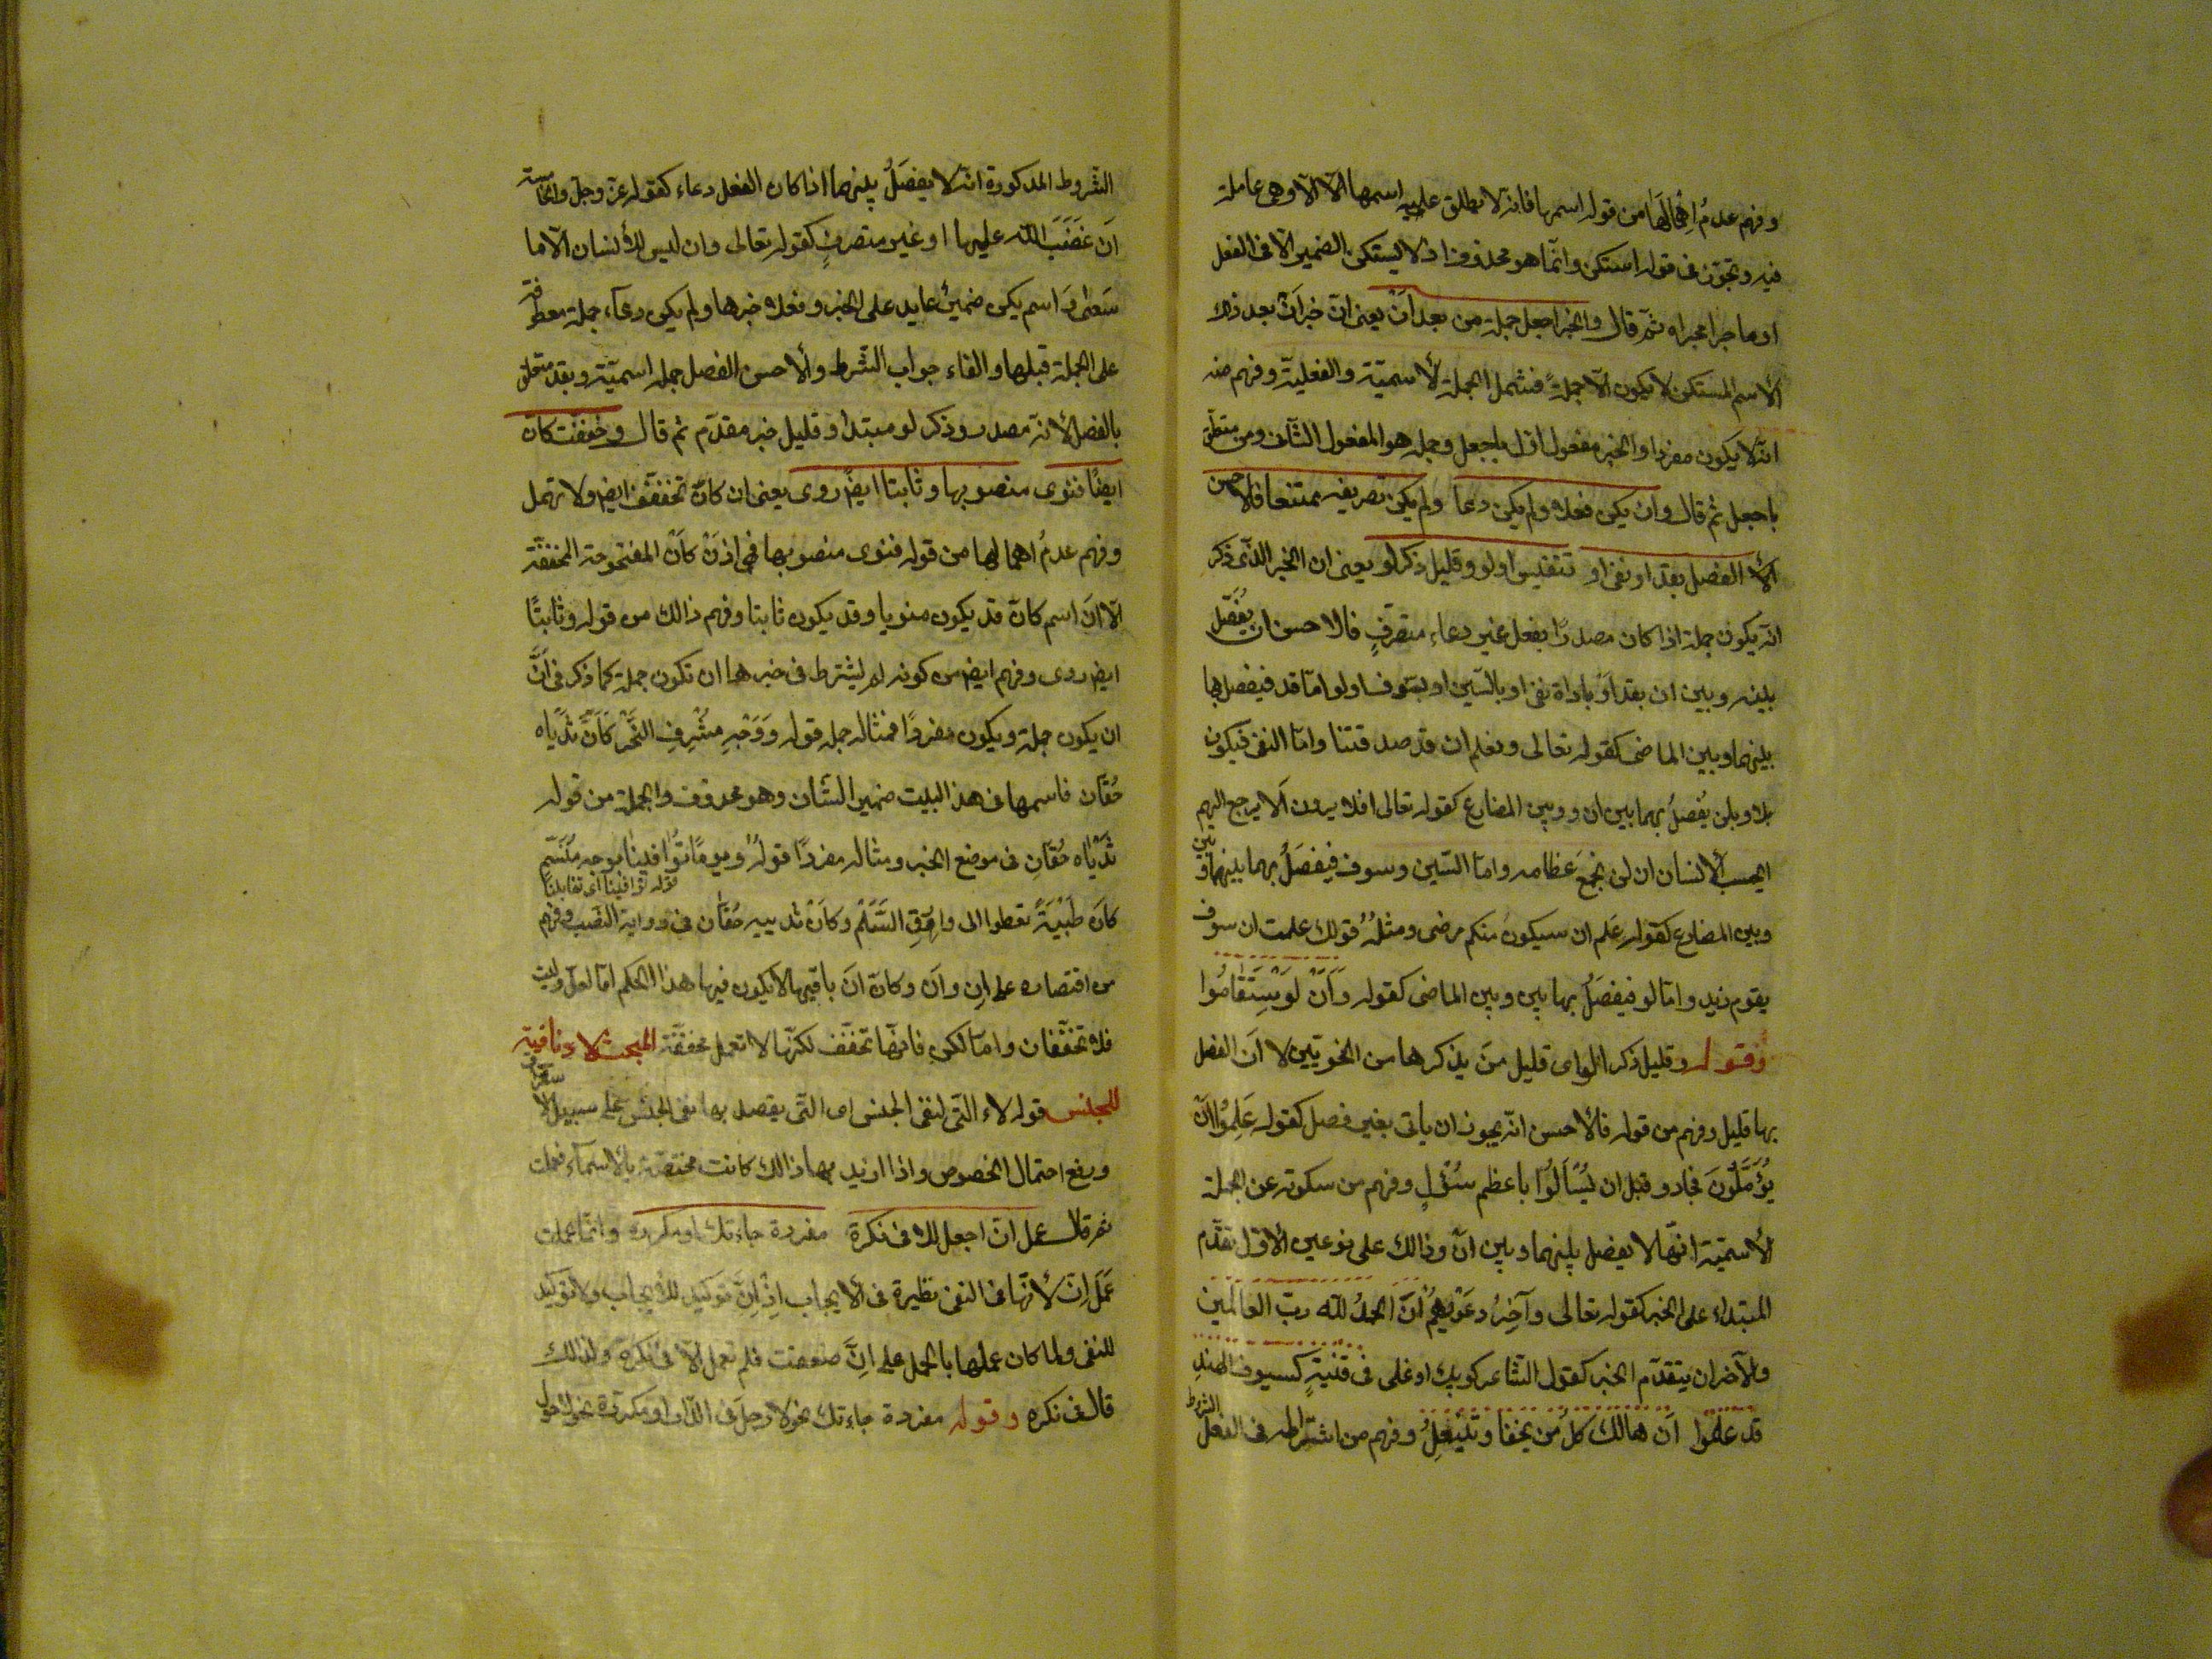 وفهم عدم اهمالها من قوله اسمها فانه لا يطلق عليه اسمها الا وهي عاملة
فيه وتجوّز في قوله استكن وانّما هو محذوف اذ لا يستكن الضمير الا في الفعل
او ما جرا مجراه ثمّ قال والخبر اجعل جملة من بعد أنْ يعني انّ خبر انْ بعد ذلك
الاسم المستكن لا يكون الّا جملةً فشمل الجملة الاسميّة والفعليّة وفهم منه
انّه لا يكون مفردا والخبر مفعول اوّل باجعل وجملة هو المفعول الثّاني ومن متعلّق
باجعل ثم قال وان يكن فعلا ولم يكن دعا ولم يكن تصريفه ممتنعا فالاحسن
الفصل بقد او نفي او تنفيس او لو وقليل ذكر لو يعني ان الخبر الذّي ذكر
انّه يكون جملة اذا كان مصدرًا بفعل غير دعاء متصرّفٍ فالاحسن ان يُفصّل
بينه وبين ان بقد اوْ باداة نفي او بالسّين او بسوف او لو امّا قد فيفصل بها
بينهما وبين الماضي كقوله تعالى ونعلم ان قد صدقتنا وامّا النفي فيكون
بلا وبلن يُفصلُ بهما بين ان وبين المضارع كقوله تعالى افلا يرون ألا يرجع اليهم
ايحسب الانسان ان لن نجمع عظامه وامّا السّين وسوف فيفصَلُ بهما بينهما و
بين
وبين المضارع كقوله علم ان سيكون منكم مرضى ومثلُهُ قولك علمت ان سوف
يقوم زيد وامّا لو فيفصَلُ بها بين وبين الماضي كقوله وَأَنْ لَوِ سْتَقَامُوا
وقوله وقليل ذكر لو اى قليل مَن يذكرها من النحويّين لا انّ الفصل
بها قليل وفهم من قوله فالاحسن انّه يجوز ان ياتي بغير فصل كقوله عَلِمُوا انْ
يُؤَمَّلُونَ فجادوا قبل ان يُسْأَلُوا باعظم سُؤْلٍ وفهم من سكوته عن الجملة
الاسميّة انّها لا يفصل بينهما وبين انْ وذالك على نوعين الاوّل تقدّم
المبتداء على الخبر كقوله تعالى وآخِرُ دعَوْيهُمْ أَنْ الحمدُ للّه ربّ العالمين
والآخر ان يتقدّم الخبر كقول الشّاعر في فتيةٍ كسيوف الهندِ
قد علموا أن هالك كلّ من يحفا وينتعلُ وفهم من اشتراطه في الفعل
الشروط
الشّروط المذكورة انّه لا يفصَلُ بينهما اذا كان الفعل دعاء كقوله عزّ وجلّ والخامسة
أنْ غَضَبَ اللّه عليها او غير متصرفٍ كقوله تعالى وان ليس للانسان الّا ما
سَعى وَاسم يكن ضميرٌ عايد على الخبر وفعلا خبرها ولم يكن دعآء جملة معطوفة
على الجملة قبلها والفاء جواب الشّرط والاحسن الفصل جملة اسميّة وبقد متعلق
بالفصل لأنه مصدر وذكر لو مبتدا وقليل خبر مقدّم ثم قال وخففت كانّ
ايضًا فنوى منصوبها وثابتا ايضً روى يعني ان كانّ تخفّف ايض ولا تهمل
وفهم عدمُ اهمالها من قوله فنوى منصوبها فهي اذنْ كانْ المفتوحة المخففّة
الّا انّ اسم كانّ قد يكون منويا وقد يكون ثابتا وفهم ذالك من قوله وثابتًا
ايض روى وفهم ايض من كونه لم يشترط في خبرها ان تكون جملة كما ذكر في أنَّ
ان يكون جملة ويكون مفردًا فمثاله جملة قوله وَوَجْهٍ مشْرِفِ النَّحْرِ كَأَنْ ثَدْيَاه
حُقَّان فاسمها في هذ البيت ضمير الشّان وهو محذوف والجملة من قوله
ثَدْيَاه حُقّان في موضع الخبر ومثاله مفردًا قولُهُ ويومًا تُوافينا بوجه مُقَسَّمٍ
قوله توافينا اى تقابلنا
كانْ ظَبْيَةً تعطوا الى وارِقِ السَّلَمْ وكانْ ثدييه حُقّان في رواية النّصب وفهم
من اقتصاره على ان وأن وكانّ انّ باقيها لا يكون فيها هذا الحكم امّا لعلّ وليت
فلا تخفّفان وامّا لكن فانهّا تخفّف لكنّها لا تعمل مخفّفة المبحث لاء نافية
للجنس قوله لاء التّي لنفي الجنس اى التّي يقصد بها نفي الجنس على سبيل الا
ستغراق
ورفع احتمال الخصوص واذا اريد بها ذالك كانت مختصّة بالاسماء فعملت
ثم قال عمل انّ اجعل للا في نكرة مفردة جاءتك او مكررة وانّما عملت
عَمَلَ إنّ لأنّها في النفي نظيرة في الايجاب إذْ إنَّ توكيد للايجاب ولا توكيد
للنفي ولما كان عملها بالحمل على إنَّ ضعفت فلم تعمل الّا في نكرة ولذالك
قال في نكره وقوله مفردة جاءتك نحو لا رجل في الدّار او مكرّرة نحو لا حول